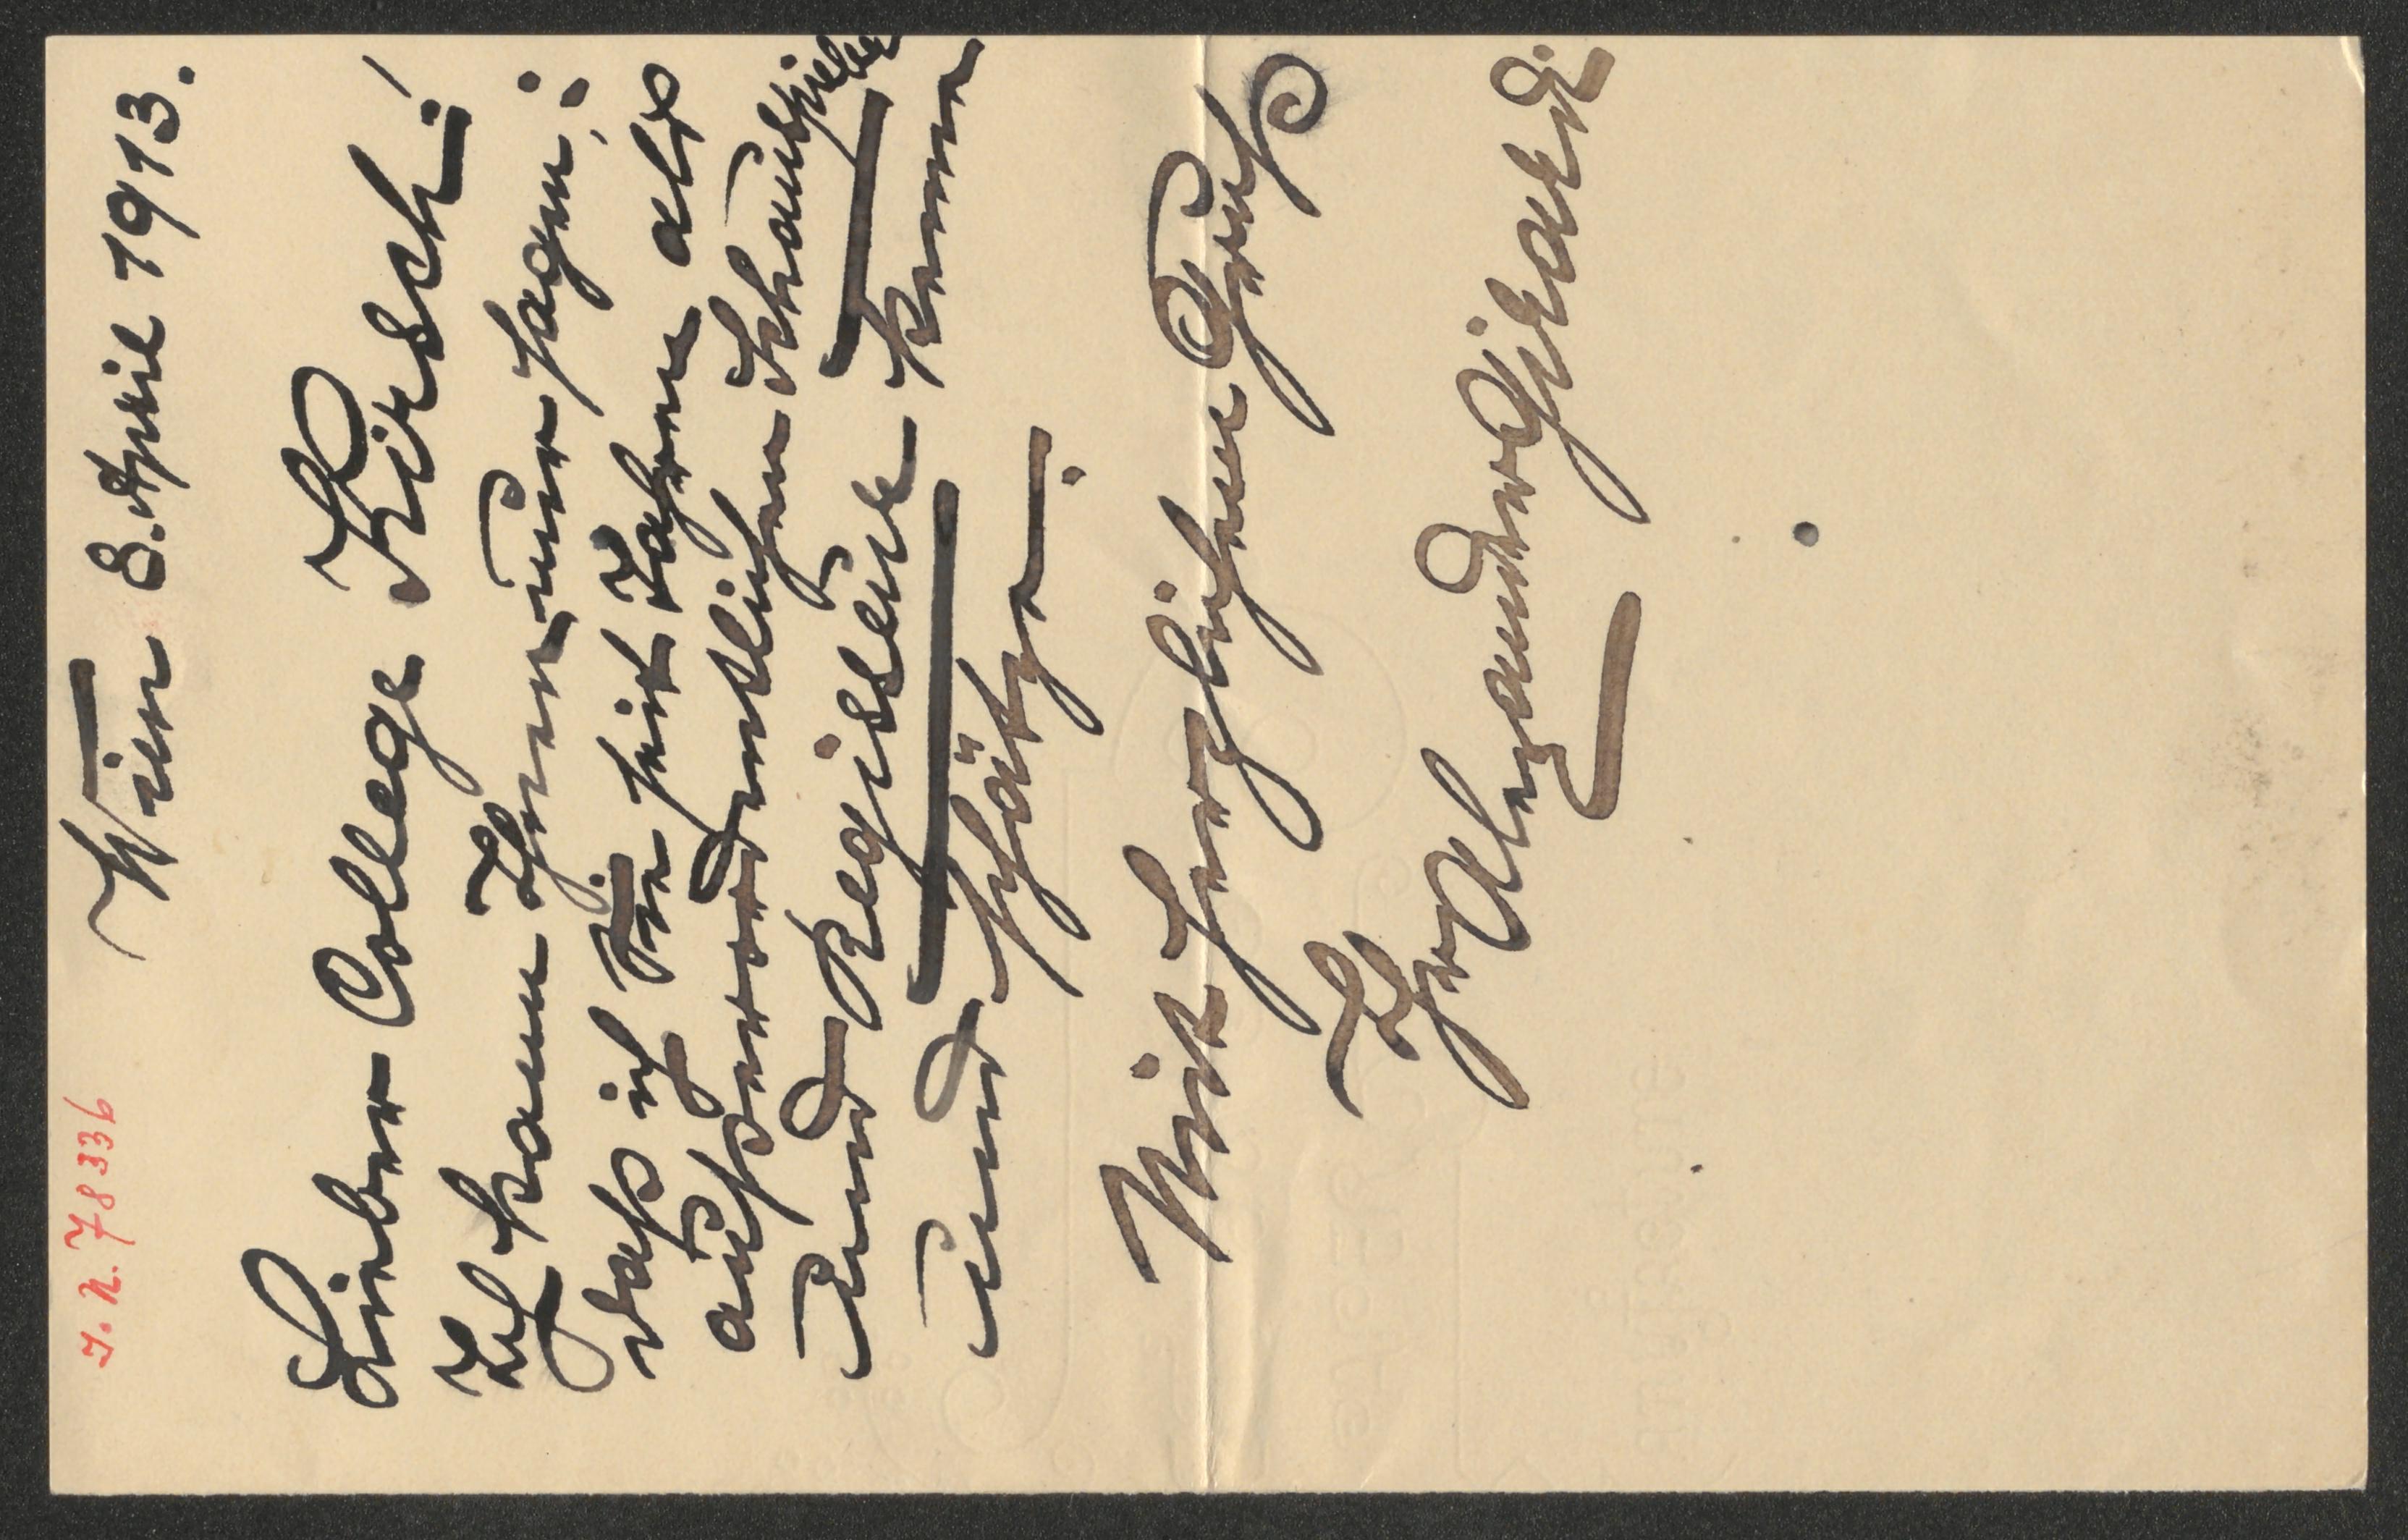 J. N. 78336
Wien 8. April 1913.
Lieber College Kirsch!
Ich kann Ihnen nur sagen;:
daß ich Sie seit Jahren als
außerordentlichen Schauspieler
und Regisseur kenne
und schätze.
Mit herzlichem Gruß
Ihr Alexander Girardi.